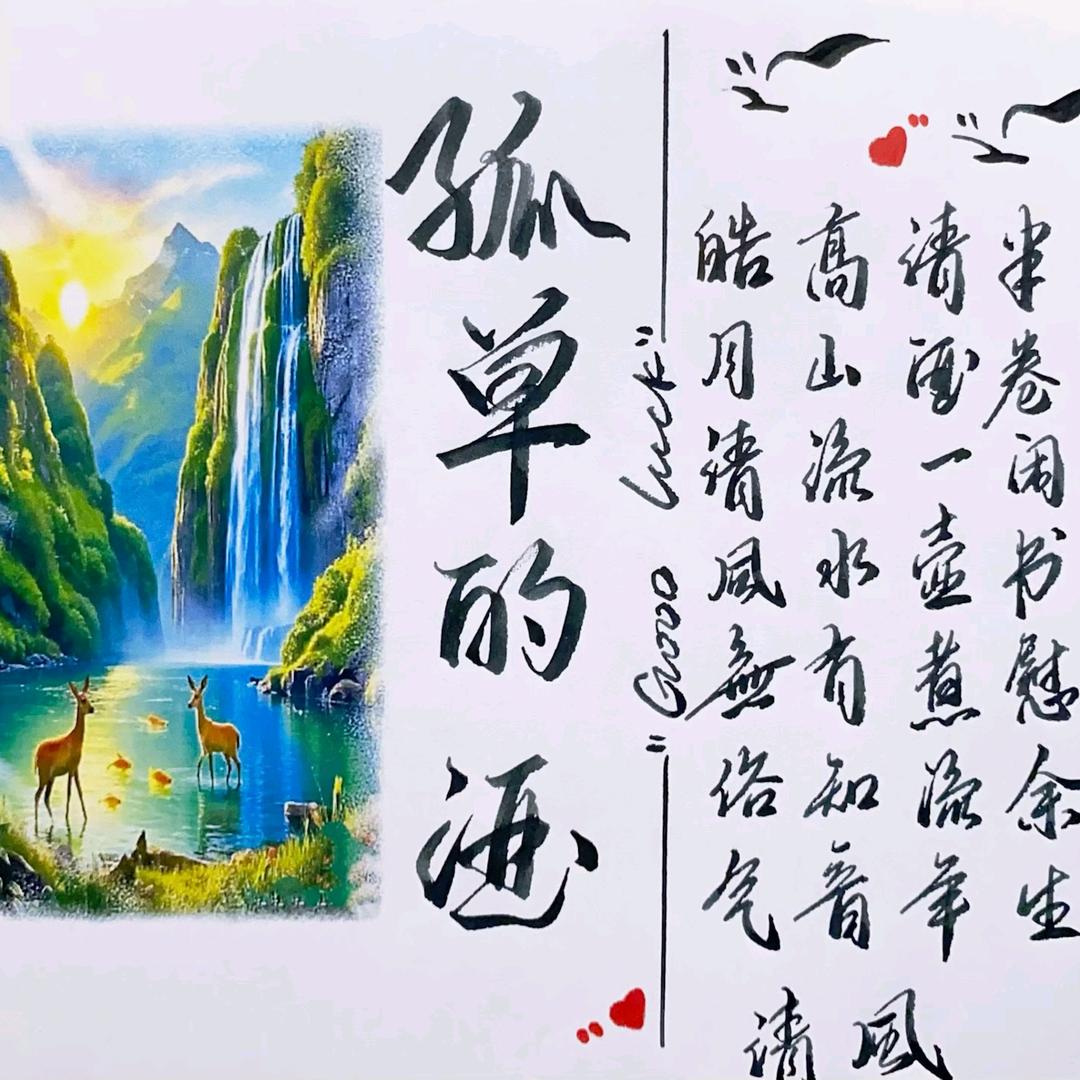 半卷闲书慰余生
清酒一壶煮流年
高山流水有知音
皓月清风無俗气
清风
"Good luck"
孤单的酒